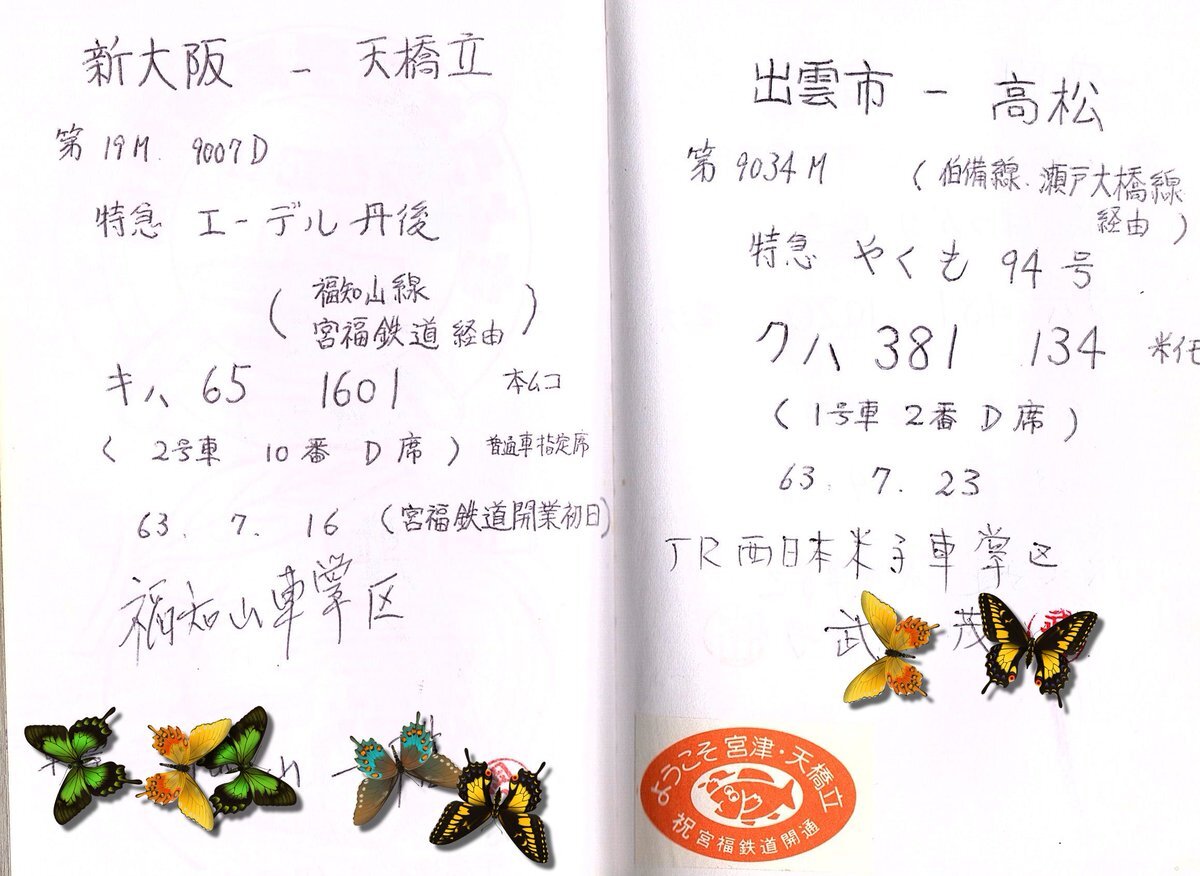 新大阪 － 天橋立
第 19M 9007D
特急 エーデル丹後
( 福知山線
宮福鉄道 経由 )
キハ 65 1601 本ムコ
( 2号車 10番 D席 ) 普通車指定席
63. 7. 16 (宮福鉄道開業初日)
福知山車掌区
出雲市 － 高松
第 9034M (伯備線.瀬戸大橋線
経由)
特急 やくも 94号
クハ 381 134 米イモ
( 1号車 2番 D席 )
63. 7. 23
JR西日本米子車掌区
武 茂
ようこそ宮津・天橋立
祝 宮福鉄道開通